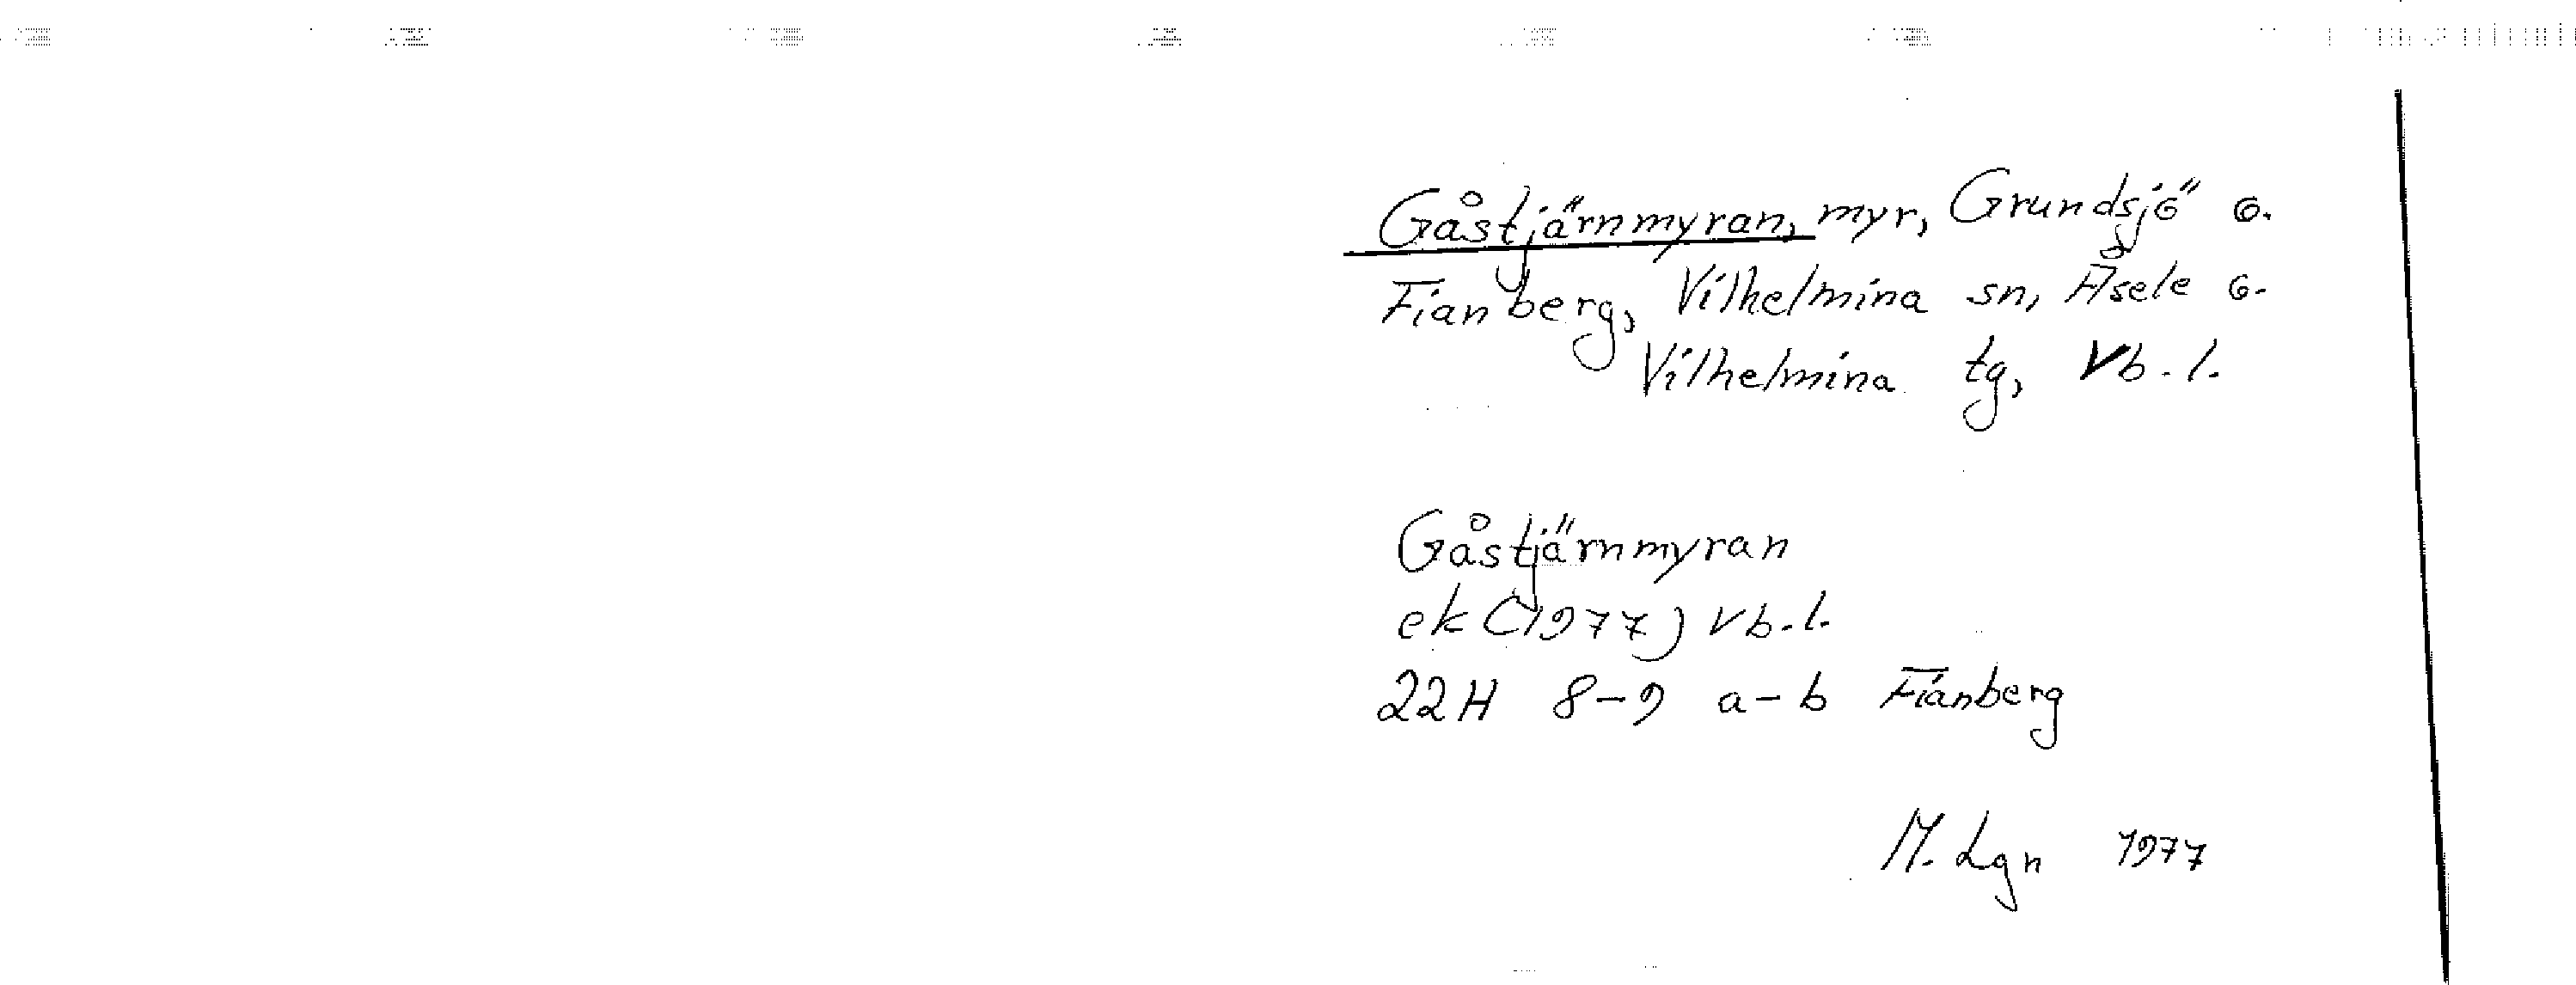 Gåstjärnmyran, myr, Grundsjö o.
Fianberg, Vilhelmina sn, Åsele o.
Vilhelmina tg, Vb. l.
Gåstjärnmyran
ek (1977) Vb. l.
22H 8-9 a-b Fianberg
M. Lgn 1977